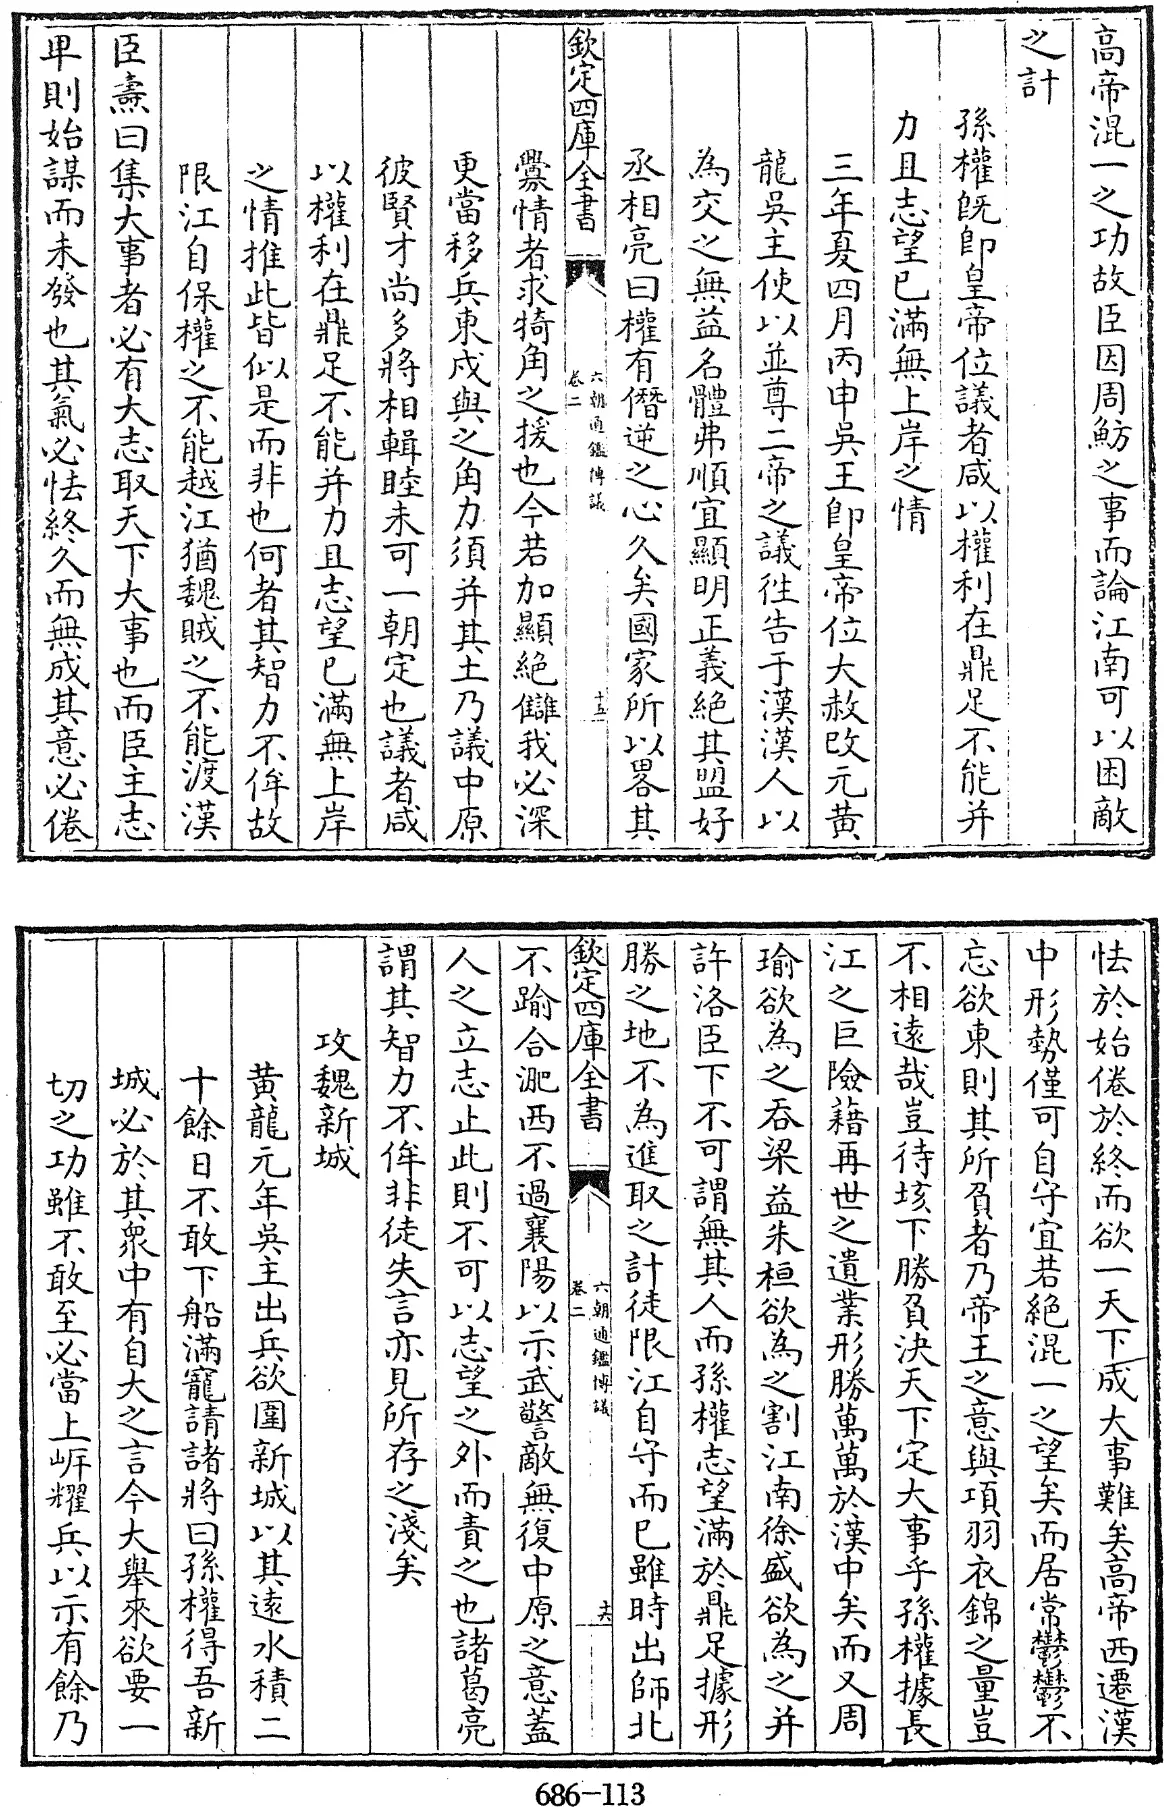 高帝混一之功故臣因周魴之事而論江南可以困敵
之計
孫權既即皇帝位議者咸以權利在鼎足不能并
力且志望已滿無上岸之情
三年夏四月丙申吳王即皇帝位大赦改元黃
龍吳主使以並尊二帝之議徃告于漢漢人以
為交之無益名體弗順宜顯明正義絶其盟好
丞相亮曰權有僭逆之心久矣國家所以畧其
欽定四庫全書
六朝通鑑博議
卷二
十五
釁情者求犄角之援也今若加顯絶讎我必深
更當移兵東戍與之角力須并其土乃議中原
彼賢才尚多將相輯睦未可一朝定也議者咸
以權利在鼎足不能并力且志望已滿無上岸
之情推此皆似是而非也何者其智力不侔故
限江自保權之不能越江猶魏賊之不能渡漢
臣燾曰集大事者必有大志取天下大事也而臣主志
卑則始謀而未發也其氣必怯終久而無成其意必倦
怯於始倦於終而欲一天下成大事難矣高帝西遷漢
中形勢僅可自守宜若絶混一之望矣而居常鬱鬱不
忘欲東則其所負者乃帝王之意與項羽衣錦之量豈
不相逺哉豈待垓下勝負決天下定大事乎孫權據長
江之巨險藉再世之遺業形勝萬萬於漢中矣而又周
瑜欲為之吞梁益朱桓欲為之割江南徐盛欲為之并
許洛臣下不可謂無其人而孫權志望滿於鼎足據形
勝之地不為進取之計徒限江自守而已雖時出師北
欽定四庫全書
六朝通鑑博議
卷二
十六
不踰合淝西不過襄陽以示武警敵無復中原之意蓋
人之立志止此則不可以志望之外而責之也諸葛亮
謂其智力不侔非徒失言亦見所存之淺矣
攻魏新城
黃龍元年吳主出兵欲圍新城以其逺水積二
十餘日不敢下船滿寵請諸將曰孫權得吾新
城必於其衆中有自大之言今大舉來欲要一
切之功雖不敢至必當上岸耀兵以示有餘乃
686-113